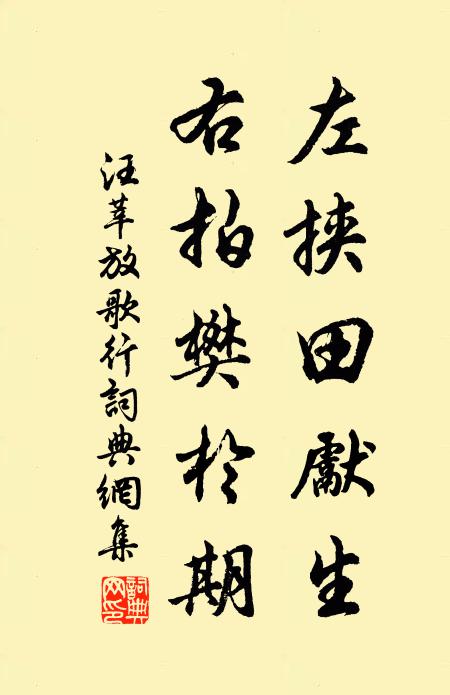 左挾田獻生
右拍樊於期
汪莘放歌行詞典網集
詞典
网印